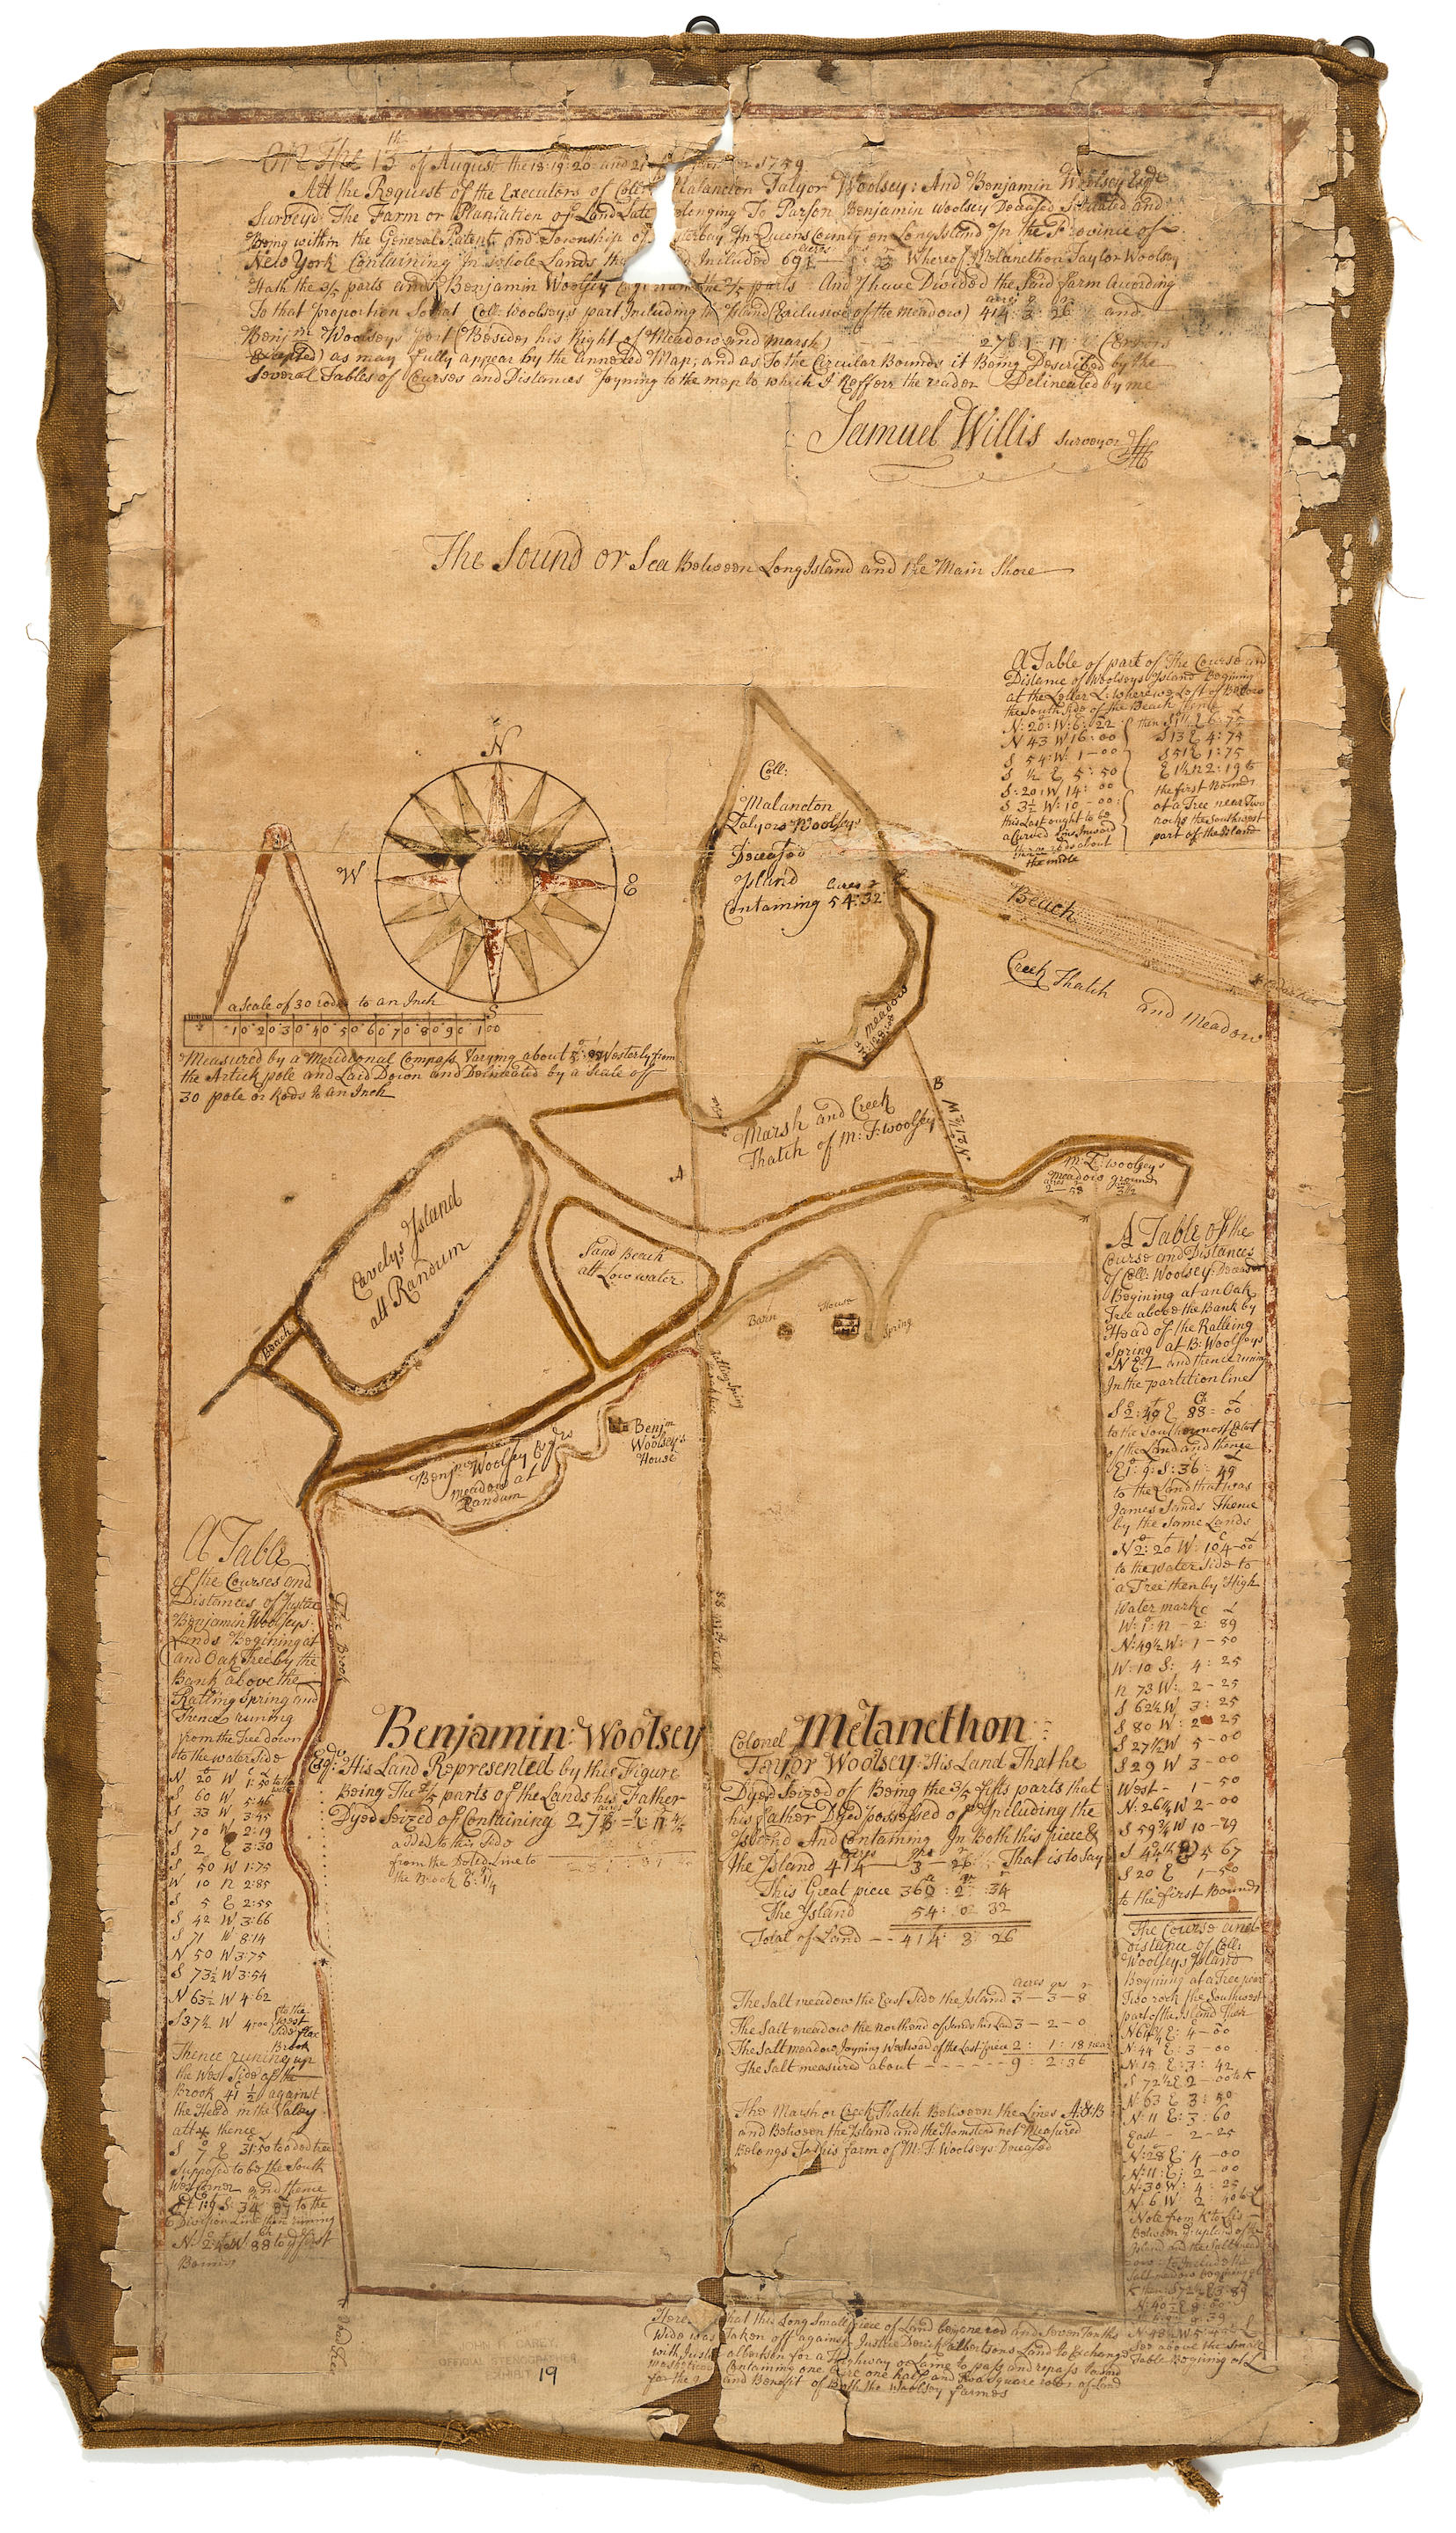 On The 13th of August the 18th 19th 20 and 21 1759
Att the Request of the Executors of Coll Malancton Talyor Woolsey: And Benjamin Woolsey Esqr
Surveyd The Farm or Plantation of Land Late Belonging To Parson Benjamin Woolsey Deceased Situated and
Being within the General Patent and Township of Oysterbay In Queens County on Long Island In the Province of
New York Containing In whole Lands Included 69 acres Whereof Melancthon Taylor Woolsey
Hath the 3/5 parts and Benjamin Woolsey the 2/5 parts And I have Divided the Said farm According
To that Proportion So that Coll: Woolseys part Including the Island (Exclusive of the meadow) 414: 3: 26 and
Benjmn Woolseys part (Besides his Right of Meadow and Marsh) 278 1 11 (Errors
Excepted) as may fully appear by the annexed Map; and as To the Circular Bounds it Being Described by the
Several Tables of Courses and Distances Joyning to the map to which I Reffer the reader Delineated by me
Samuel Willis Surveyor
The Sound or Sea Between Long Island and the Main Shore
A Table of part of the Course and
Distance of Woolseys Island Begining
at the Letter L: where we Left of Below
the South Side of the Beach thence
N: 20: W: 6: 22 then S 6: 75
N 43 W 16: 00 S 13 E 4: 75
S 54: W: 1-00 S 51 E 1: 75
S 1/2 E 5: 50 E 1 1/2 N 2: 19 to
S: 20: W 14: 00 the first Bounds
S 3 1/2 W: 10-00: at a Tree near Two
this Last ought to be rocks the Southwest
a Curved line Inward part of the Island
rods about
the midle
N
W
E
S
a Scale of 30 rods to an Inch
10 20 30 40 50 60 70 80 90 100
Measured by a Meridional Compass Varying about Westerly from
the Artick pole and Laid Down and Delineated by a Scale of
30 pole or Rods to an Inch
Coll:
Malancton
Talyors Woolseys
Deceased
Island
Containing acres 54: 32
Beach
Creek Thatch
and Meadow
meadow
3: 28: 00
Marsh and Creek
Thatch of M: T: woolsey
A
B
N 21 1/2 W
M: T: woolseys
meadow ground
2-58
Cavelys Island
att Randum
Beach
Sand Beach
att Low water
Barn
House
Spring
Ratling Spring
Benjmn
Woolsey's
House
Benjmn Woolsey Esqrs
meadow at
Randum
A Table
of the Courses and
Distances of Justice
Benjamin Woolseys
Lands Begining at
and Oak Tree by the
Bank above the
Ratling Spring and
Thence runing
from the Tree down
to the water Side
N 20 W 1: 50
S 60 W 5:46
S 33 W 3:45
S 70 W 2:19
S 2 E 3:30
S 50 W 1:75
W 10 N 2:85
S 5 E 2:55
S 42 W 3:66
S 71 W 8:14
N 50 W 3:75
S 73 1/2 W 3:54
N 63 1/2 W 4:62
S 37 1/2 W 4:00 to the
west
Side flax
Brook
Thence runing up
the West Side of the
Brook 41 1/2 against
the Head in the Valey
att thence
S 7 E 31:50 to a ded tree
Supposed to be the South
West Corner and thence
E: 1: 9: S: 34 87 to the
Division Line then runing
N: 2: 40 W 88 to first
Bounds
Flax Brook
N: 2: 40 W 88
A Table of the
Course and Distances
of Coll: Woolsey: Deceasd
Begining at an Oak
Tree above the Bank by
Head of the Ratleing
Spring at B: Woolseys
N E: L and thence runing
In the partition line
S 2: 49 E 88: 00
to the Southermost Extent
of the Land and thence
E 1: 9: S: 36: 49
to the Land that was
James Sands Thence
by the Same Lands
N 2: 20 W: 104-00
to the water Side to
a Tree then by High
Water mark
W: 1: n - 2: 89
N: 49 1/2 W: 1-50
W: 10 S: 4: 25
n 73 W: 2-25
S 62 1/2 W 3: 25
S 80 W: 2 25
S 27 1/2 W 5-00
S 29 W 3-00
West - 1-50
N: 26 1/4 W 2-00
S 59 3/4 W 10-79
S 44 1/2 5 67
S 20 E 1-50
to the first Bounds
The Course and
distance of Coll:
Woolseys Island
Begining at a Tree near
Two rock the Southwest
part of the Island Then
N 64 3/4 E: 4-00
N: 44 E: 3-00
N: 15 E: 7: 42
S 72 1/2 E 2-00 to K
N: 63 E 3: 50
N: 11 E: 3: 60
East - 2-25
N: 28 E: 4-00
N: 11: E: 2-00
N: 30 W: 4: 25
N: 6 W: 2
Note from K to L is
Between upland of
Island and the Salt mead
ow to Include the
Salt meadow begining at
K thence S 72 1/2 E 3: 89
See above the Small
Table Begining at L
Benjamin: Woolsey
Esqr: His Land Represented by this Figure
Being The 2/5 parts of the Lands his Father
Dyed Seized of Containing 278
added to this Side
from the Doted Line to
the Brook 6:
Colonel Melancthon
Taylor Woolsey: His Land That he
Dyed Seized of Being the 3/5 fifts parts that
his father Dyed possessed of Including the
Island And Containing In Both this piece &
the Island 414 3 26 That is to Say
This Great piece 360: 2: 34
The Island 54: 0: 32
Total of Land -- 414: 3: 26
acres qrs r
The Salt meadow the East Side the Island 3-3-8
The Salt meadow the northend of Sands his Land 3-2-0
The Salt meadow Joyning Westward of the Last piece 2: 1: 18 near
The Salt measured about ------ 9: 2: 36
The Marsh or Creek Thatch Between the Lines A: & B
and Between the Island and the Homsted not Measured
Belongs To this farm of M: T: Woolseys Deceased
Here that this Long Small piece of Land being one rod and Seven Tenths
Wide was Taken off against Justice Derick Albertsons Land to Exchange
with Justice albertson for a Highway or Lane to pass and repass
Containing one Acre one half and Rod Square rods of Land
for the and Benefit of Both the Woolsey farmes
JOHN H. CAREY,
OFFICIAL STENOGRAPHER
EXHIBIT 19